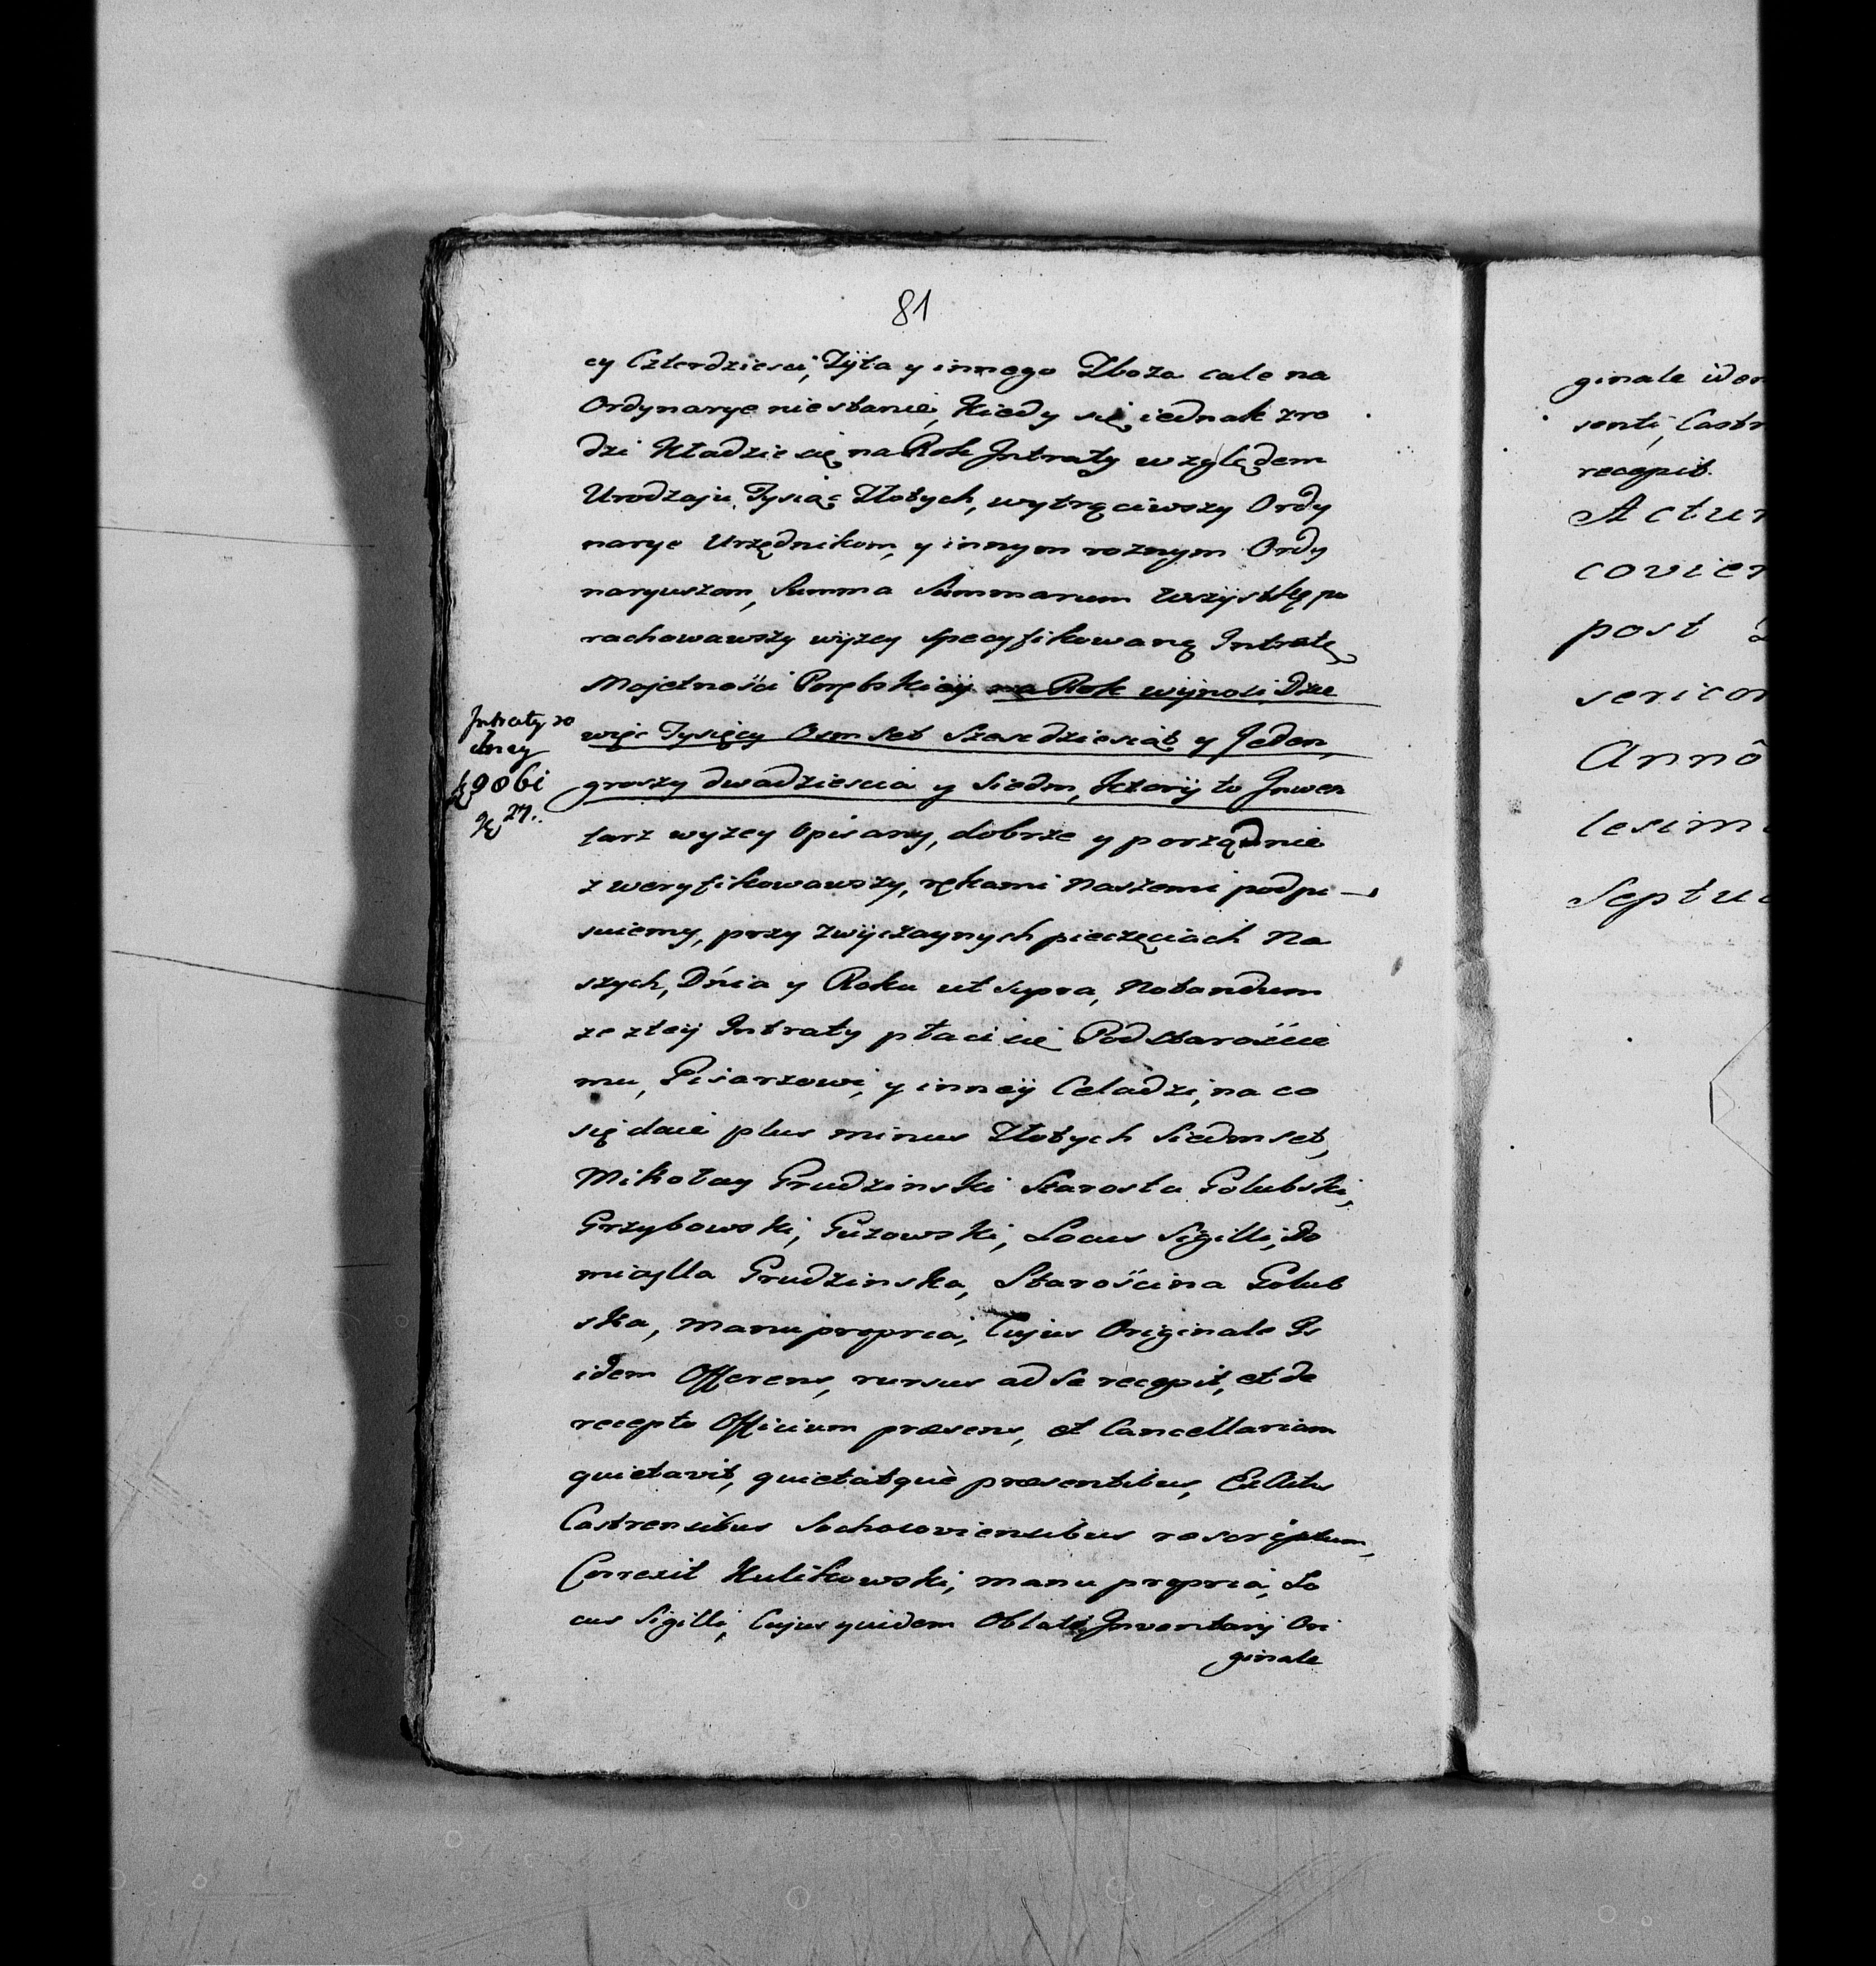 81
cy Czterdziesci, Żÿta y innego Zboża cale na
Ordynarye niestanie, Kiedy się iednak zro
dzi Kładzie się na Rok Jntraty względem
Urodzaju, Tysiąc Złotych, wytrąciwszy Ordy
narye Urzędnikom, y innym roznym Ordy
naryuszom, Summa Summarum Wszÿstkę po
rachowawszy wÿzey specyfikowaną Intratę
Majetności Porębskieÿ na Rok wÿnosi, Dzie
więc Tysięcy Osm Set Szescdziesiąt y Jeden,
groszy dwadziescia y Siedm, Ktorÿ to Jnwen
tarz wyzey opisany, dobrze y porządnie
zweryfikowawszy, rękami Naszemi podpi
suiemy, przy zwÿczaynych pieczęciach Na
szych, Dnia y Roku ut supra, Notandum
ze zteÿ Intraty płaci się Podstaroście
mu, Pisarzowi, y inneÿ Celadzi, na co
się daie plus minus Złotych Siedmset,
Mikołay Grudzinski Starosta Golubski,
Grzybowski, Guzowski, Locus Sigilli, Do
micylla Grudzinska, Starościna Golub
ska, manu propria, Cujus Originale Is
idem Offerens, rursus ad Se recepit, et de
recepto Officium præsens, et Cancellariam
quietavit, quietatquè præsentibus, Ex Actis
Castrensibus Sochacoviensibus rescriptum,
Correxit Kulikowski, manu propria, Lo
cus Sigilli, Cujus quidem Oblatæ Jnventarij Ori
ginale
Jntraty ro
czney
9861
27.
ginale idem
senti, Castr
recepit.
Actum
covien
post
sericor
Annô
lesim
Septua